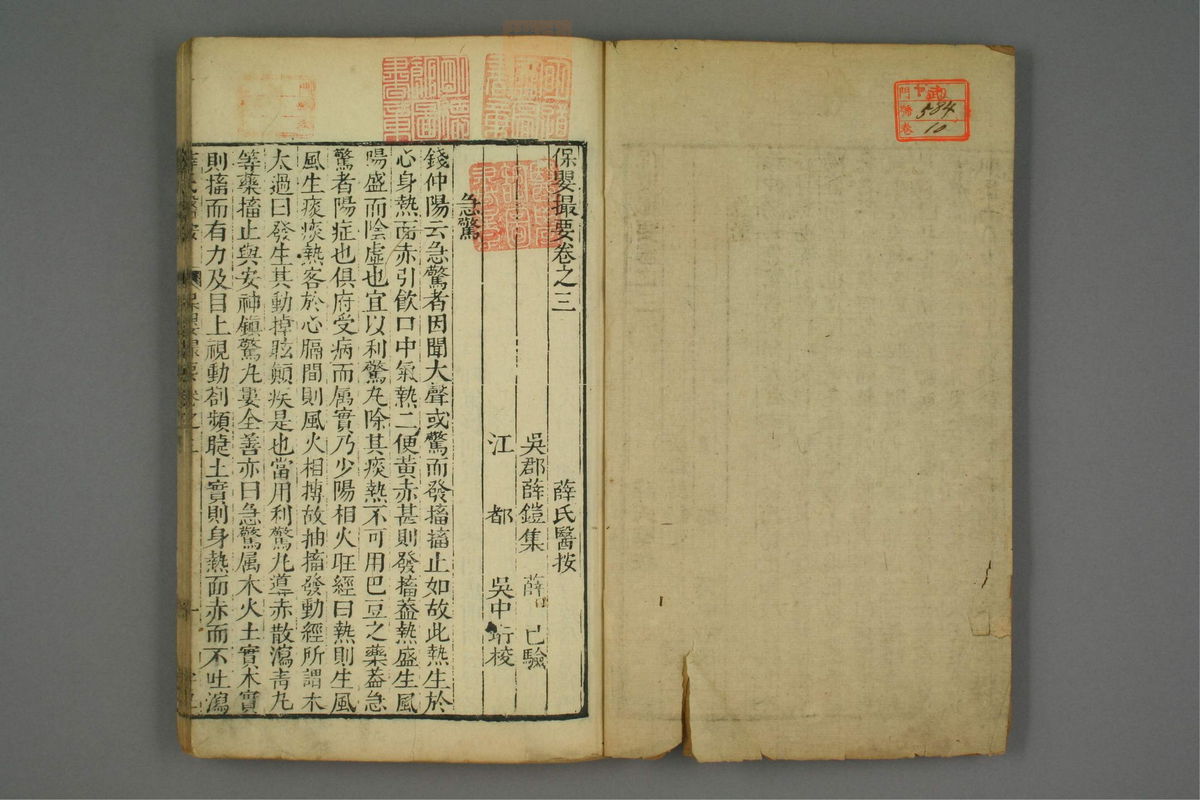 保嬰撮要卷之三
薛氏醫按
吳郡薛鎧集 薛己驗
江都 吳中珩校
急驚
錢仲陽云急驚者因聞大聲或驚而發搐搐止如故此熱生於
心身熱面赤引飲口中氣熱二便黄赤甚則發搐葢熱盛生風
陽盛而陰虛也宜以利驚丸除其痰熱不可用巴豆之藥葢急
驚者陽症也俱府受病而属實乃少陽相火旺經曰熱則生風
風生痰痰熱客於心膈間則風火相摶故抽搐發動經所謂木
太過曰發生其動掉眩顛疾是也當用利驚丸導赤散瀉青丸
等藥搐止與安神鎮驚丸婁全善亦曰急驚属木火土實木實
則搐而有力及目上視動劄頻睫土實則身熱面赤而不吐瀉
門
號
卷
584
10